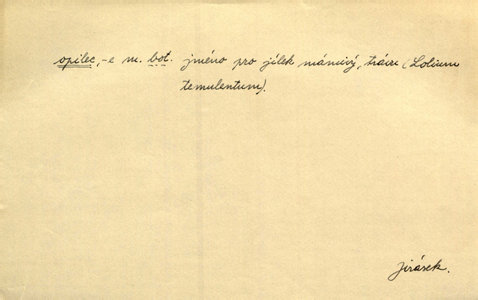 opilec, -e m. bot. jméno pro jílek mámivý, trávu (Lolium
temulentum).
Jirásek.